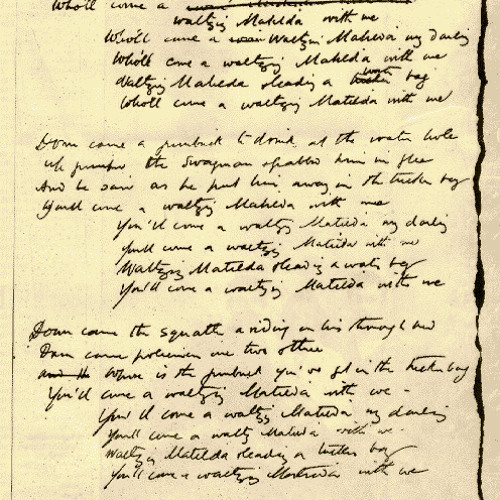 Who'll come a
waltzing Matilda with me
Who'll come a waltzing Matilda my darling
Who'll come a waltzing Matilda with me
Waltzing Matilda leading a water bag
Who'll come a waltzing Matilda with me
Down came a jumbuck to drink at the water hole
Up jumped the Swagman grabbed him in glee
And he said as he put him away in the tucker bag
You'll come a waltzing Matilda with me
You'll come a waltzing Matilda my darling
You'll come a waltzing Matilda with me
Waltzing Matilda leading a water bag
You'll come a waltzing Matilda with me
Down came the Squatter a riding on his thoroughbred
Down came policemen one two three
Where is the jumbuck you've got in the tucker bag
You'll come a waltzing Matilda with me
You'll come a waltzing Matilda my darling
You'll come a waltzing Matilda with me
Waltzing Matilda leading a tucker bag
You'll come a waltzing Matilda with me